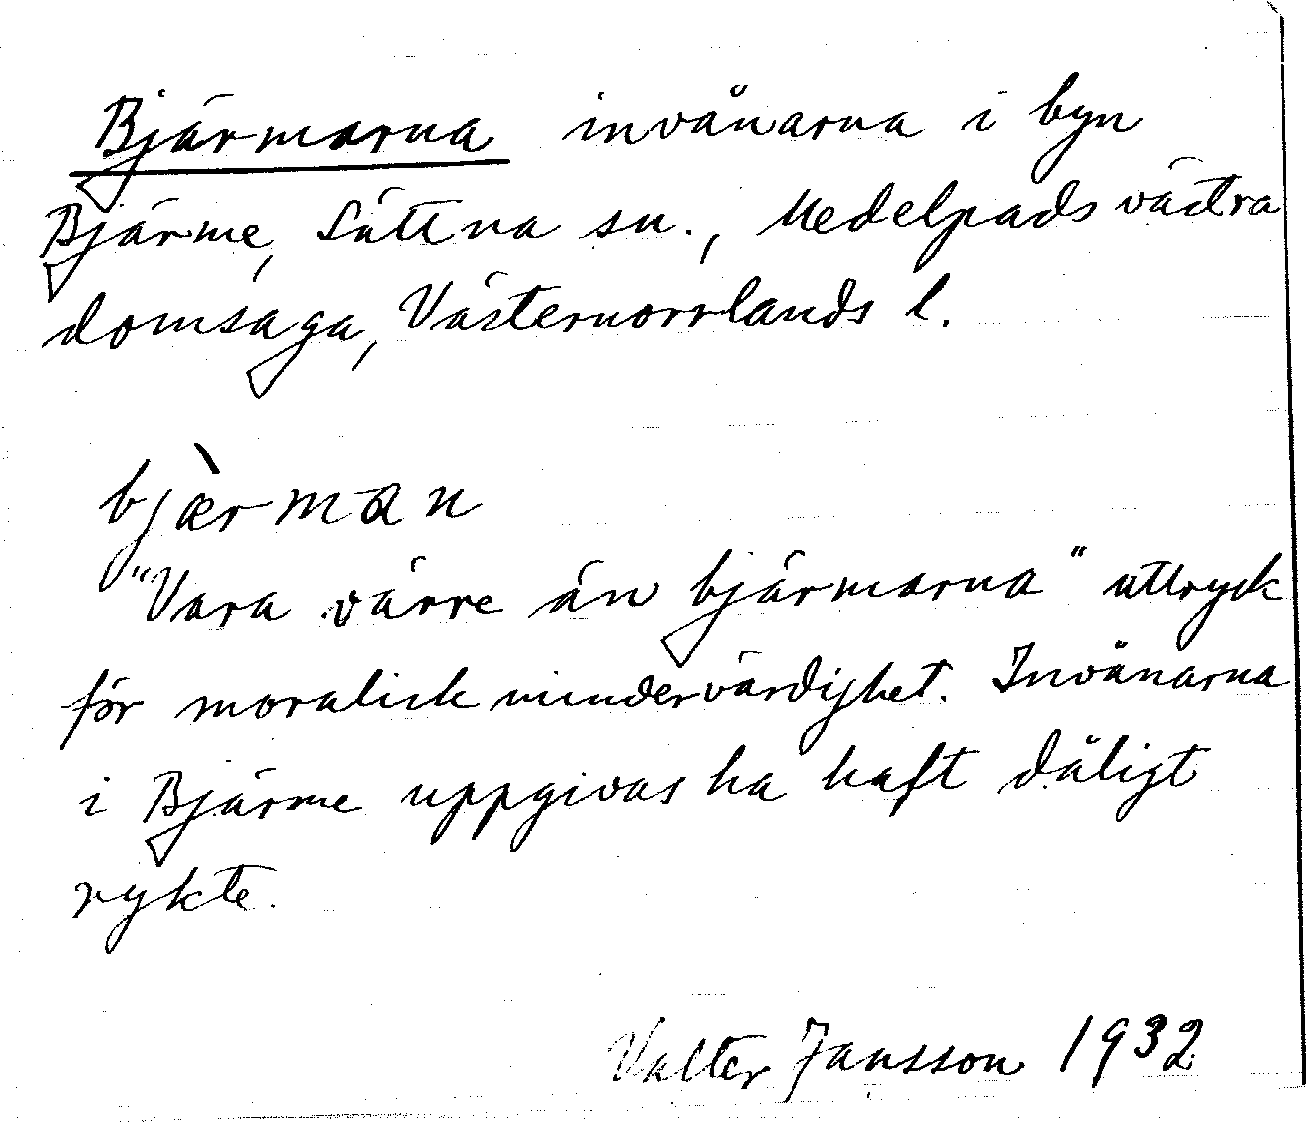 Bjärmarna invånarna i byn
Bjärme, Sättna sn., Medelpads västra
domsaga, Västernorrlands l.
bjæ̀rman
"Vara värre än bjärmarna" uttryck
för moralisk mindervärdighet. Invånarna
i Bjärme uppgivas ha haft dåligt
rykte.
Valter Jansson 1932